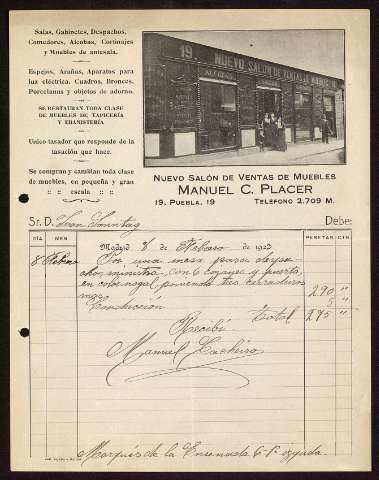 Salas, Gabinetes, Despachos,
Comedores, Alcobas, Cortinajes
y Muebles de antesala.
Espejos, Arañas, Aparatos para
luz eléctrica, Cuadros, Bronces,
Porcelanas y objetos de adorno.
SE RESTAURAN TODA CLASE
DE MUEBLES DE TAPICERÍA
Y EBANISTERÍA
Unico tasador que responde de la
tasación que hace.
Se compran y cambian toda clase
de muebles, en pequeña y gran
escala
19 NUEVO SALON DE VENTAS DE MUEBLES 19
NUEVO SALÓN DE VENTAS DE MUEBLES
MANUEL C. PLACER
19, PUEBLA, 19 TELÉFONO 2.709 M.
Sr. D. Debe:
DÍA MES PESETAS CTS.
Madrid 8 de Febrero de 1923
8 Febrero Por una mesa para despa-
cho, ministro, con 6 cajones y puerta,
en color nogal poniendo tres cerraduras
290 "
Conducción 5 "
Total 295 "
Recibí
Manuel Cacheiro
Marqués de la Ensenada 6-1º izqda.